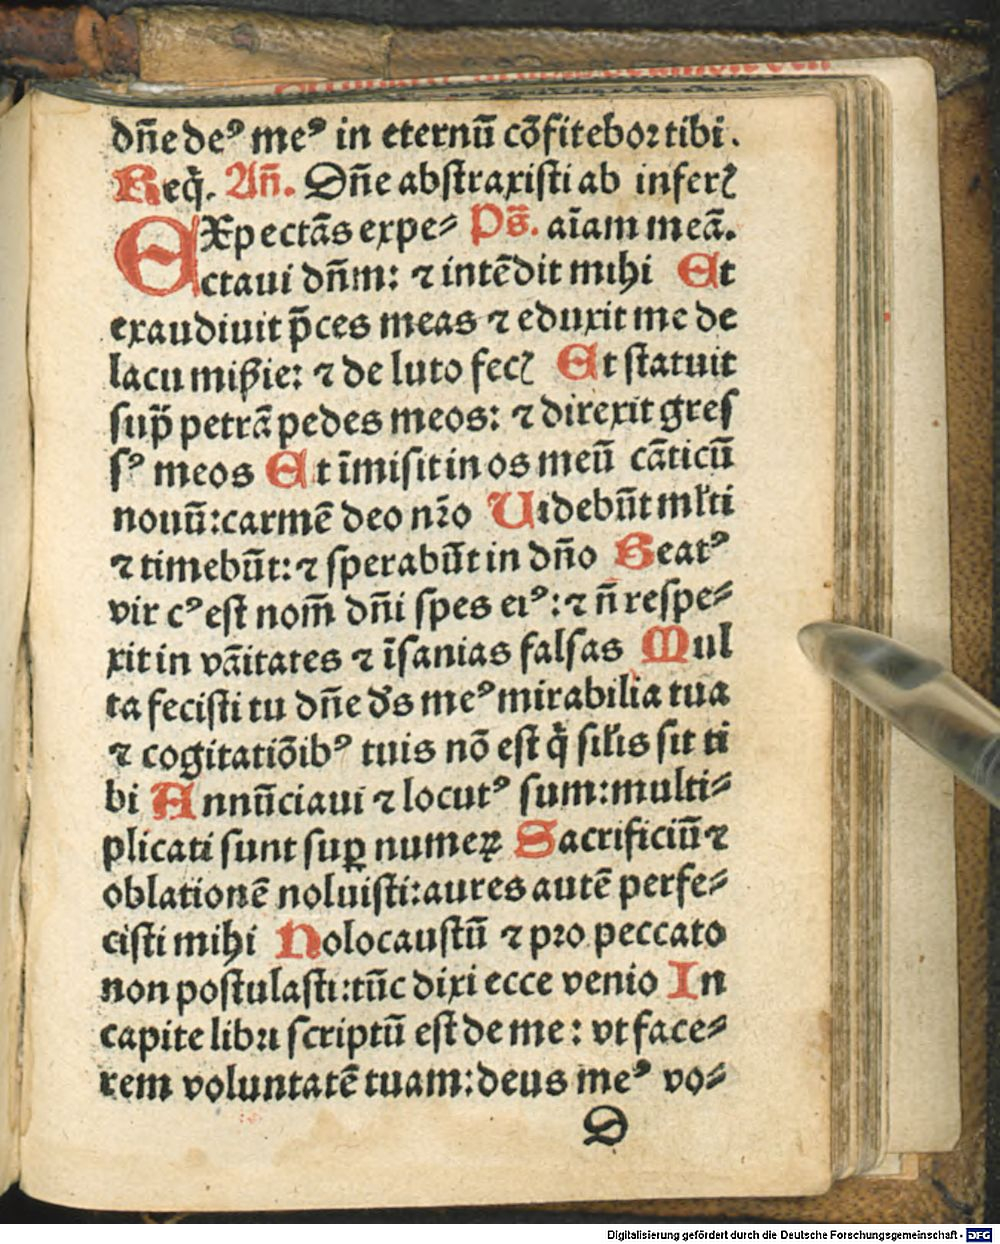 dñe deꝰ meꝰ in eternū cōfiteboꝛ tibi.
Req̄. Añ. Dñe abstraxisti ab inferꝭ
EXpectās expe⸗ Ps̄. aīam meā.
ctaui dñm: ⁊ intēdit mihi Et
exaudiuit p̄ces meas ⁊ eduxit me de
lacu miẜie: ⁊ de luto fecꝭ Et statuit
sup̄ petrā pedes meos: ⁊ direxit gres
sꝰ meos Et īmisit in os meū cāticū
nouū: carmē deo nr̄o Uidebūt ml̄ti
⁊ timebūt: ⁊ sperabūt in dño Beatꝰ
vir cꝰ est nom̄ dñi spes eiꝰ: ⁊ ñ respe⸗
xit in vāitates ⁊ īsanias falsas Mul
ta fecisti tu dñe ds̄ meꝰ mirabilia tua
⁊ cogitatiōibꝰ tuis nō est q̇ sil̄is sit ti
bi Annūciaui ⁊ locutꝰ sum: multi⸗
plicati sunt suꝑ numeꝝ Sacrificiū ⁊
oblationē noluisti: aures autē perfe⸗
cisti mihi Holocaustū ⁊ pꝛo peccato
non postulasti: tūc dixi ecce venio In
capite libꝛi scriptū est de me: vt face⸗
rem voluntatē tuam: deus meꝰ vo⸗
D
Digitalisierung gefördert durch die Deutsche Forschungsgemeinschaft - DFG